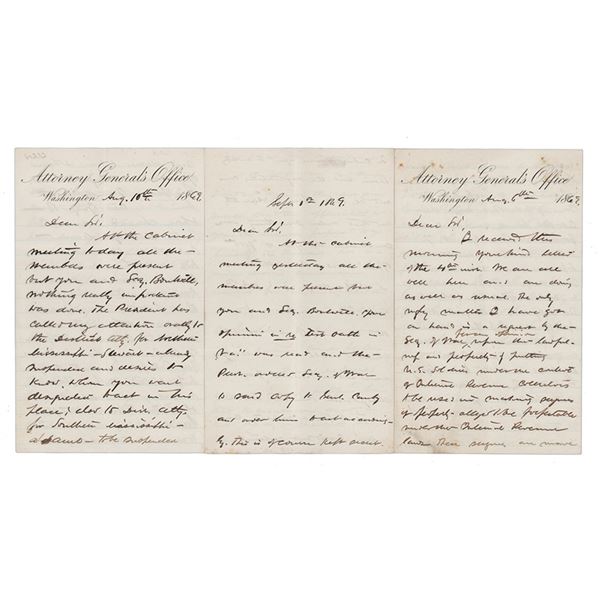 Attorney General's Office
Washington Aug. 10th. 1869.
Dear Sir.
At the Cabinet
meeting to day all the
members were present
but you and Secy. Boutwell,
nothing really important
was done. The President has
called my attention orally to
the District Atty. for Northern
Mississippi - - already
suspended and desires to
know, whom you want
designated to act in this
place; also to Dist. Atty.
for Southern Mississippi -
to be suspended
Sept 1st 1869.
Dear Sir.
At the Cabinet
meeting yesterday all the
members were present but
you and Secy. Boutwell. Your
opinion in re test oath in
Va. was read and the
Pres. ordered Secy. of War
to send copy to Genl. Canby
and order him to act according-
ly. This is of course kept secret.
Attorney General's Office
Washington Aug. 6th 1869.
Dear Sir.
I received this
morning your kind letter
of the 4th inst. We are all
well here and are doing
as well as usual. The only
ugly matter I have got
on hand is a request by the
Secy. of War, upon the lawful-
ness and propriety of putting
U.S. Soldiers under the control
of Internal Revenue Collectors
to be used in making seizures
of property alleged to be forfeitable
under the Internal Revenue
laws these seizures are made